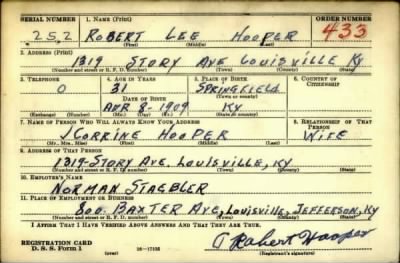 SERIAL NUMBER 1. NAME (Print) ORDER NUMBER
252 ROBERT LEE HOOPER 433
(First) (Middle) (Last)
2. ADDRESS (Print)
1319 STORY AVE LOUISVILLE KY
(Number and street or R. F. D. number) (Town) (County) (State)
3. TELEPHONE 4. AGE IN YEARS 5. PLACE OF BIRTH 6. COUNTRY OF CITIZENSHIP
O 31 SPRINGFIELD
DATE OF BIRTH (Town or county)
APR 8-1909 KY
(Exchange) (Number) (Mo.) (Day) (Yr.) (State or country)
7. NAME OF PERSON WHO WILL ALWAYS KNOW YOUR ADDRESS 8. RELATIONSHIP OF THAT PERSON
CORRINE HOOPER WIFE
(Mr., Mrs., Miss) (First) (Middle) (Last)
9. ADDRESS OF THAT PERSON
1319-STORY AVE. LOUISVILLE, KY
(Number and street or R. F. D. number) (Town) (County) (State)
10. EMPLOYER'S NAME
NORMAN STAEBLER
11. PLACE OF EMPLOYMENT OR BUSINESS
800 BAXTER AVE, LOUISVILLE, JEFFERSON, KY
(Number and street or R. F. D. number) (Town) (County) (State)
I AFFIRM THAT I HAVE VERIFIED ABOVE ANSWERS AND THAT THEY ARE TRUE.
Robert Hooper
REGISTRATION CARD
D. S. S. FORM 1 (over) 16-17105 (Registrant's signature)